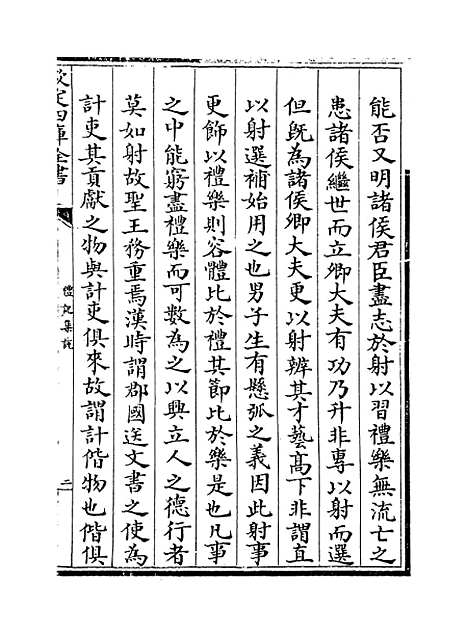 能否又明諸侯君臣盡志於射以習禮樂無流亡之
患諸侯繼世而立卿大夫有功乃升非專以射而選
但既為諸侯卿大夫更以射辨其才藝髙下非謂直
以射選補始用之也男子生有懸弧之義因此射事
更飾以禮樂則容體比於禮其節比於樂是也凡事
之中能窮盡禮樂而可數為之以興立人之德行者
莫如射故聖王務重焉漢時謂郡國送文書之使為
計吏其貢獻之物與計吏俱來故謂計偕物也偕俱
欽定四庫全書
禮記集說
二